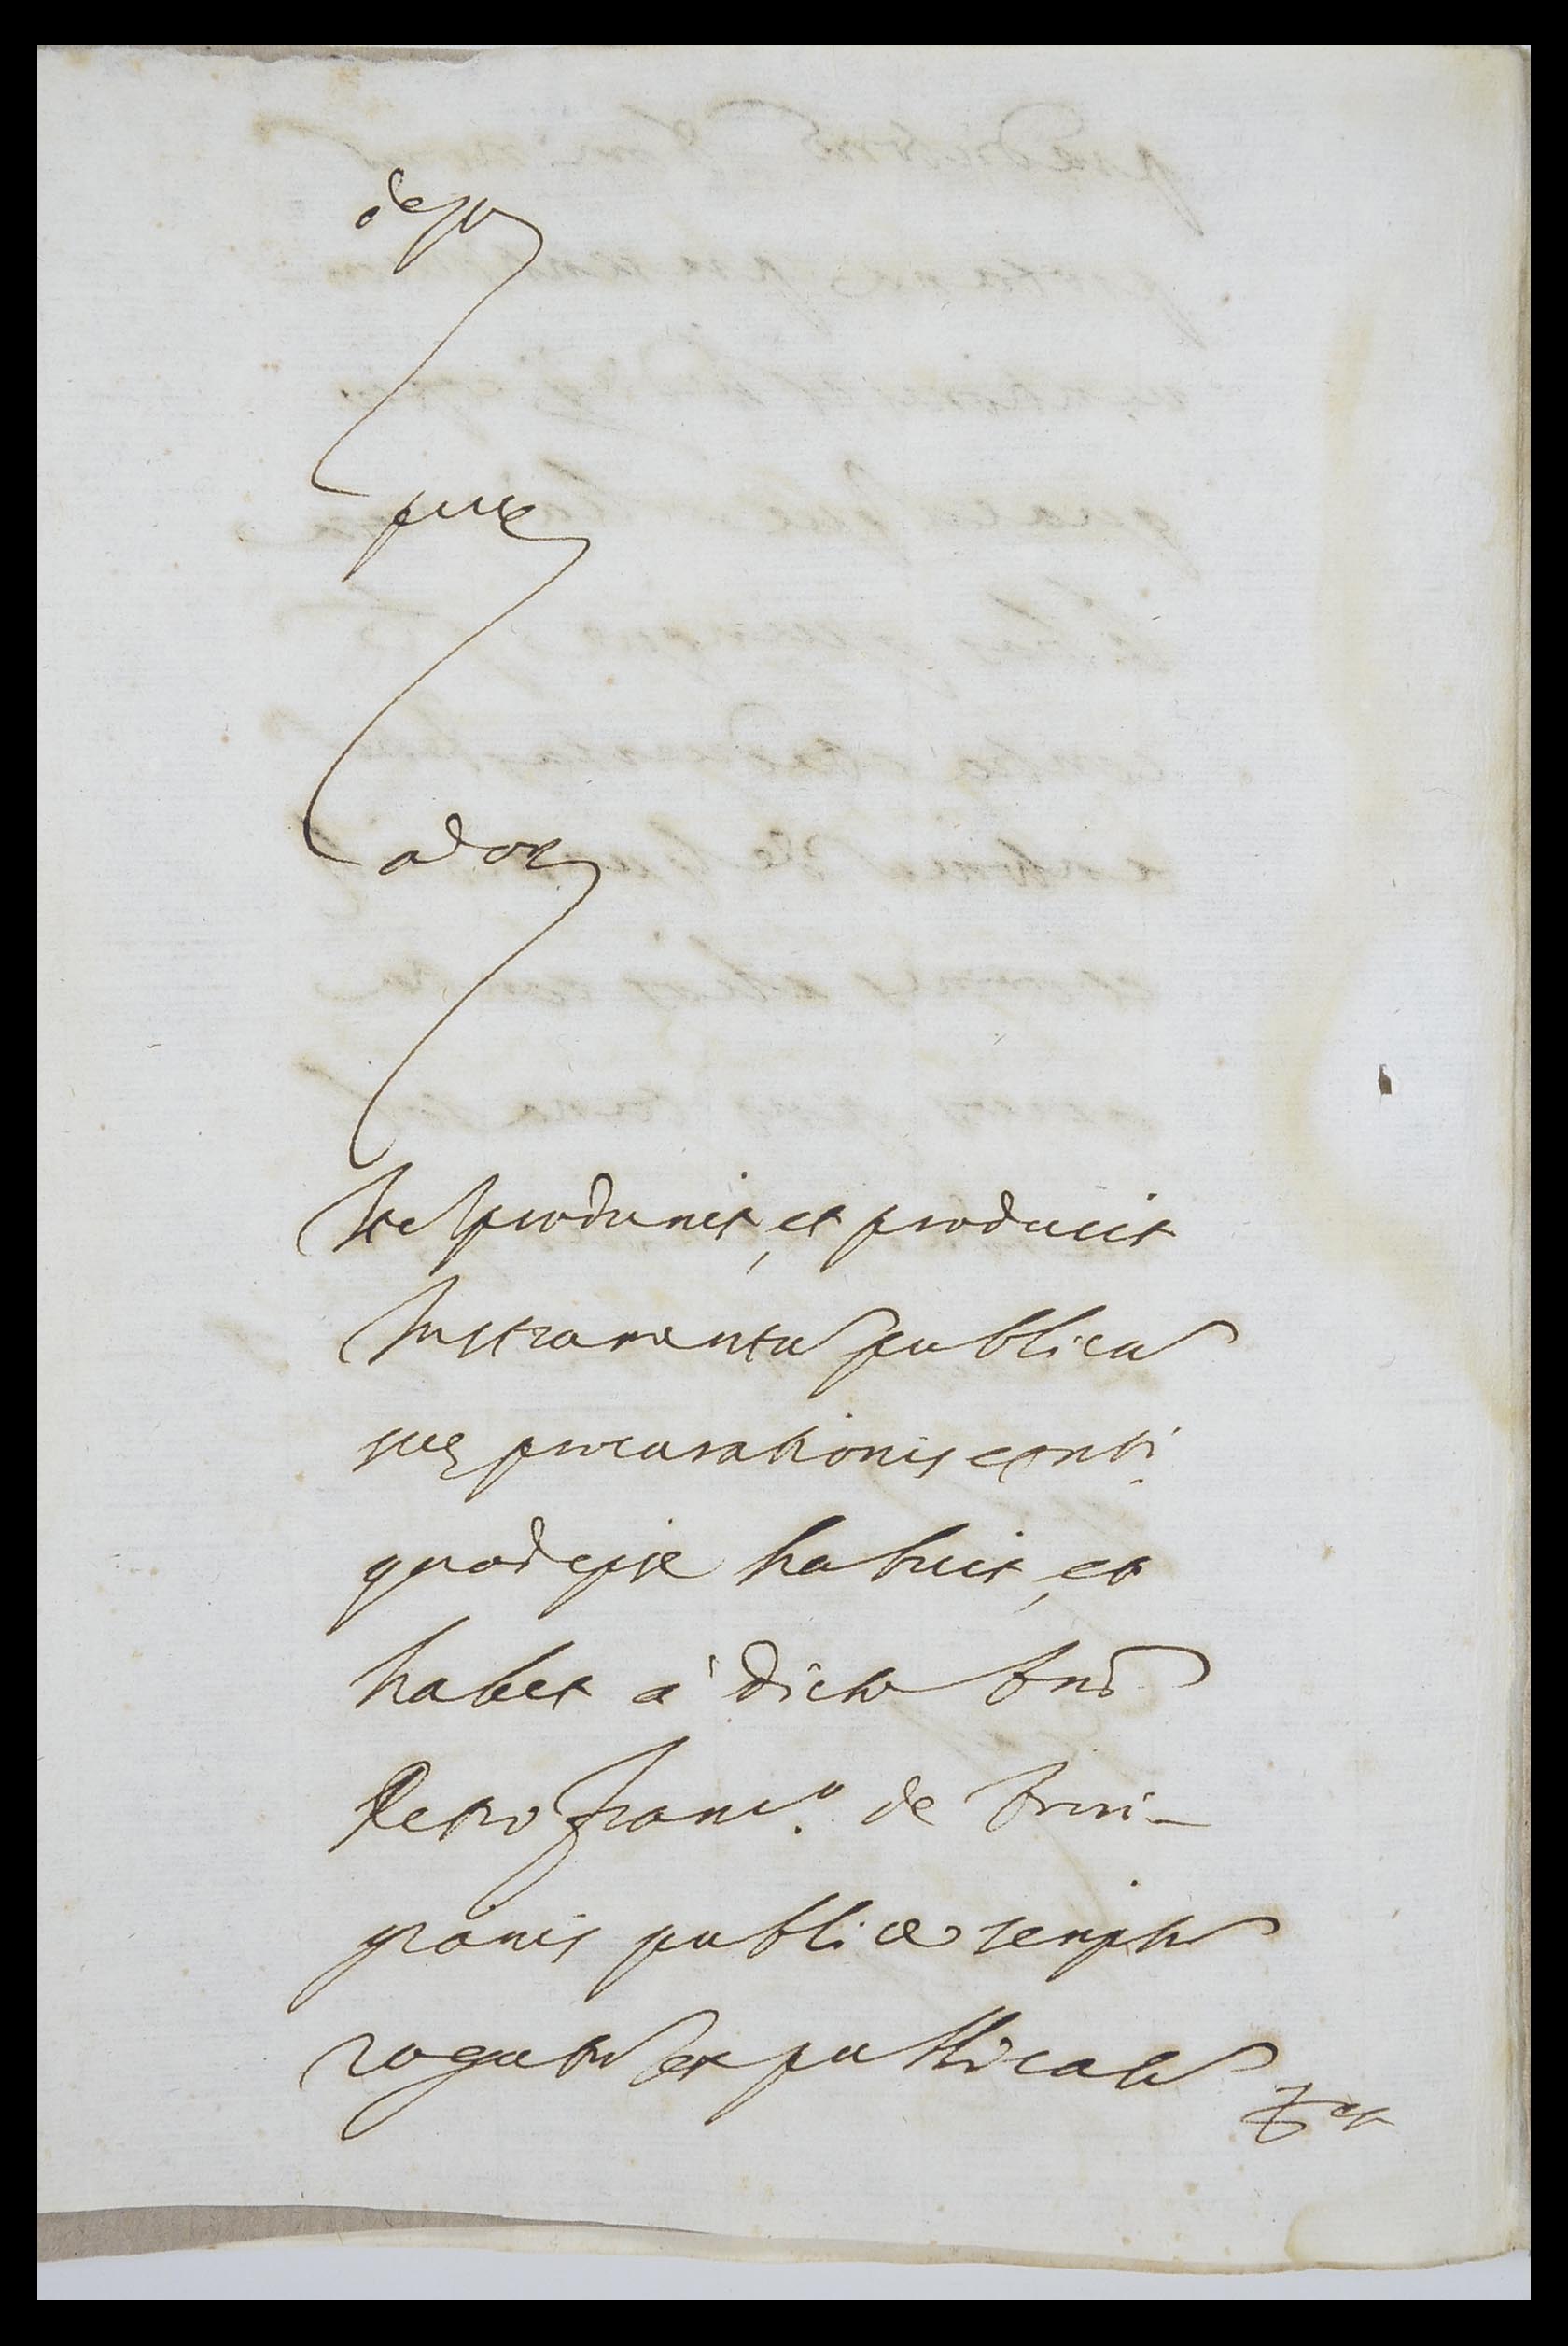 de ju
pure
ador
Ite produxit, et producit
Instrumentu publicu
sue procurationis constri.
quod ipse habuit, et
habet à dicto Dno
Petro Franc.o de Trini-
granis publice scripto
rogatu et publicatu